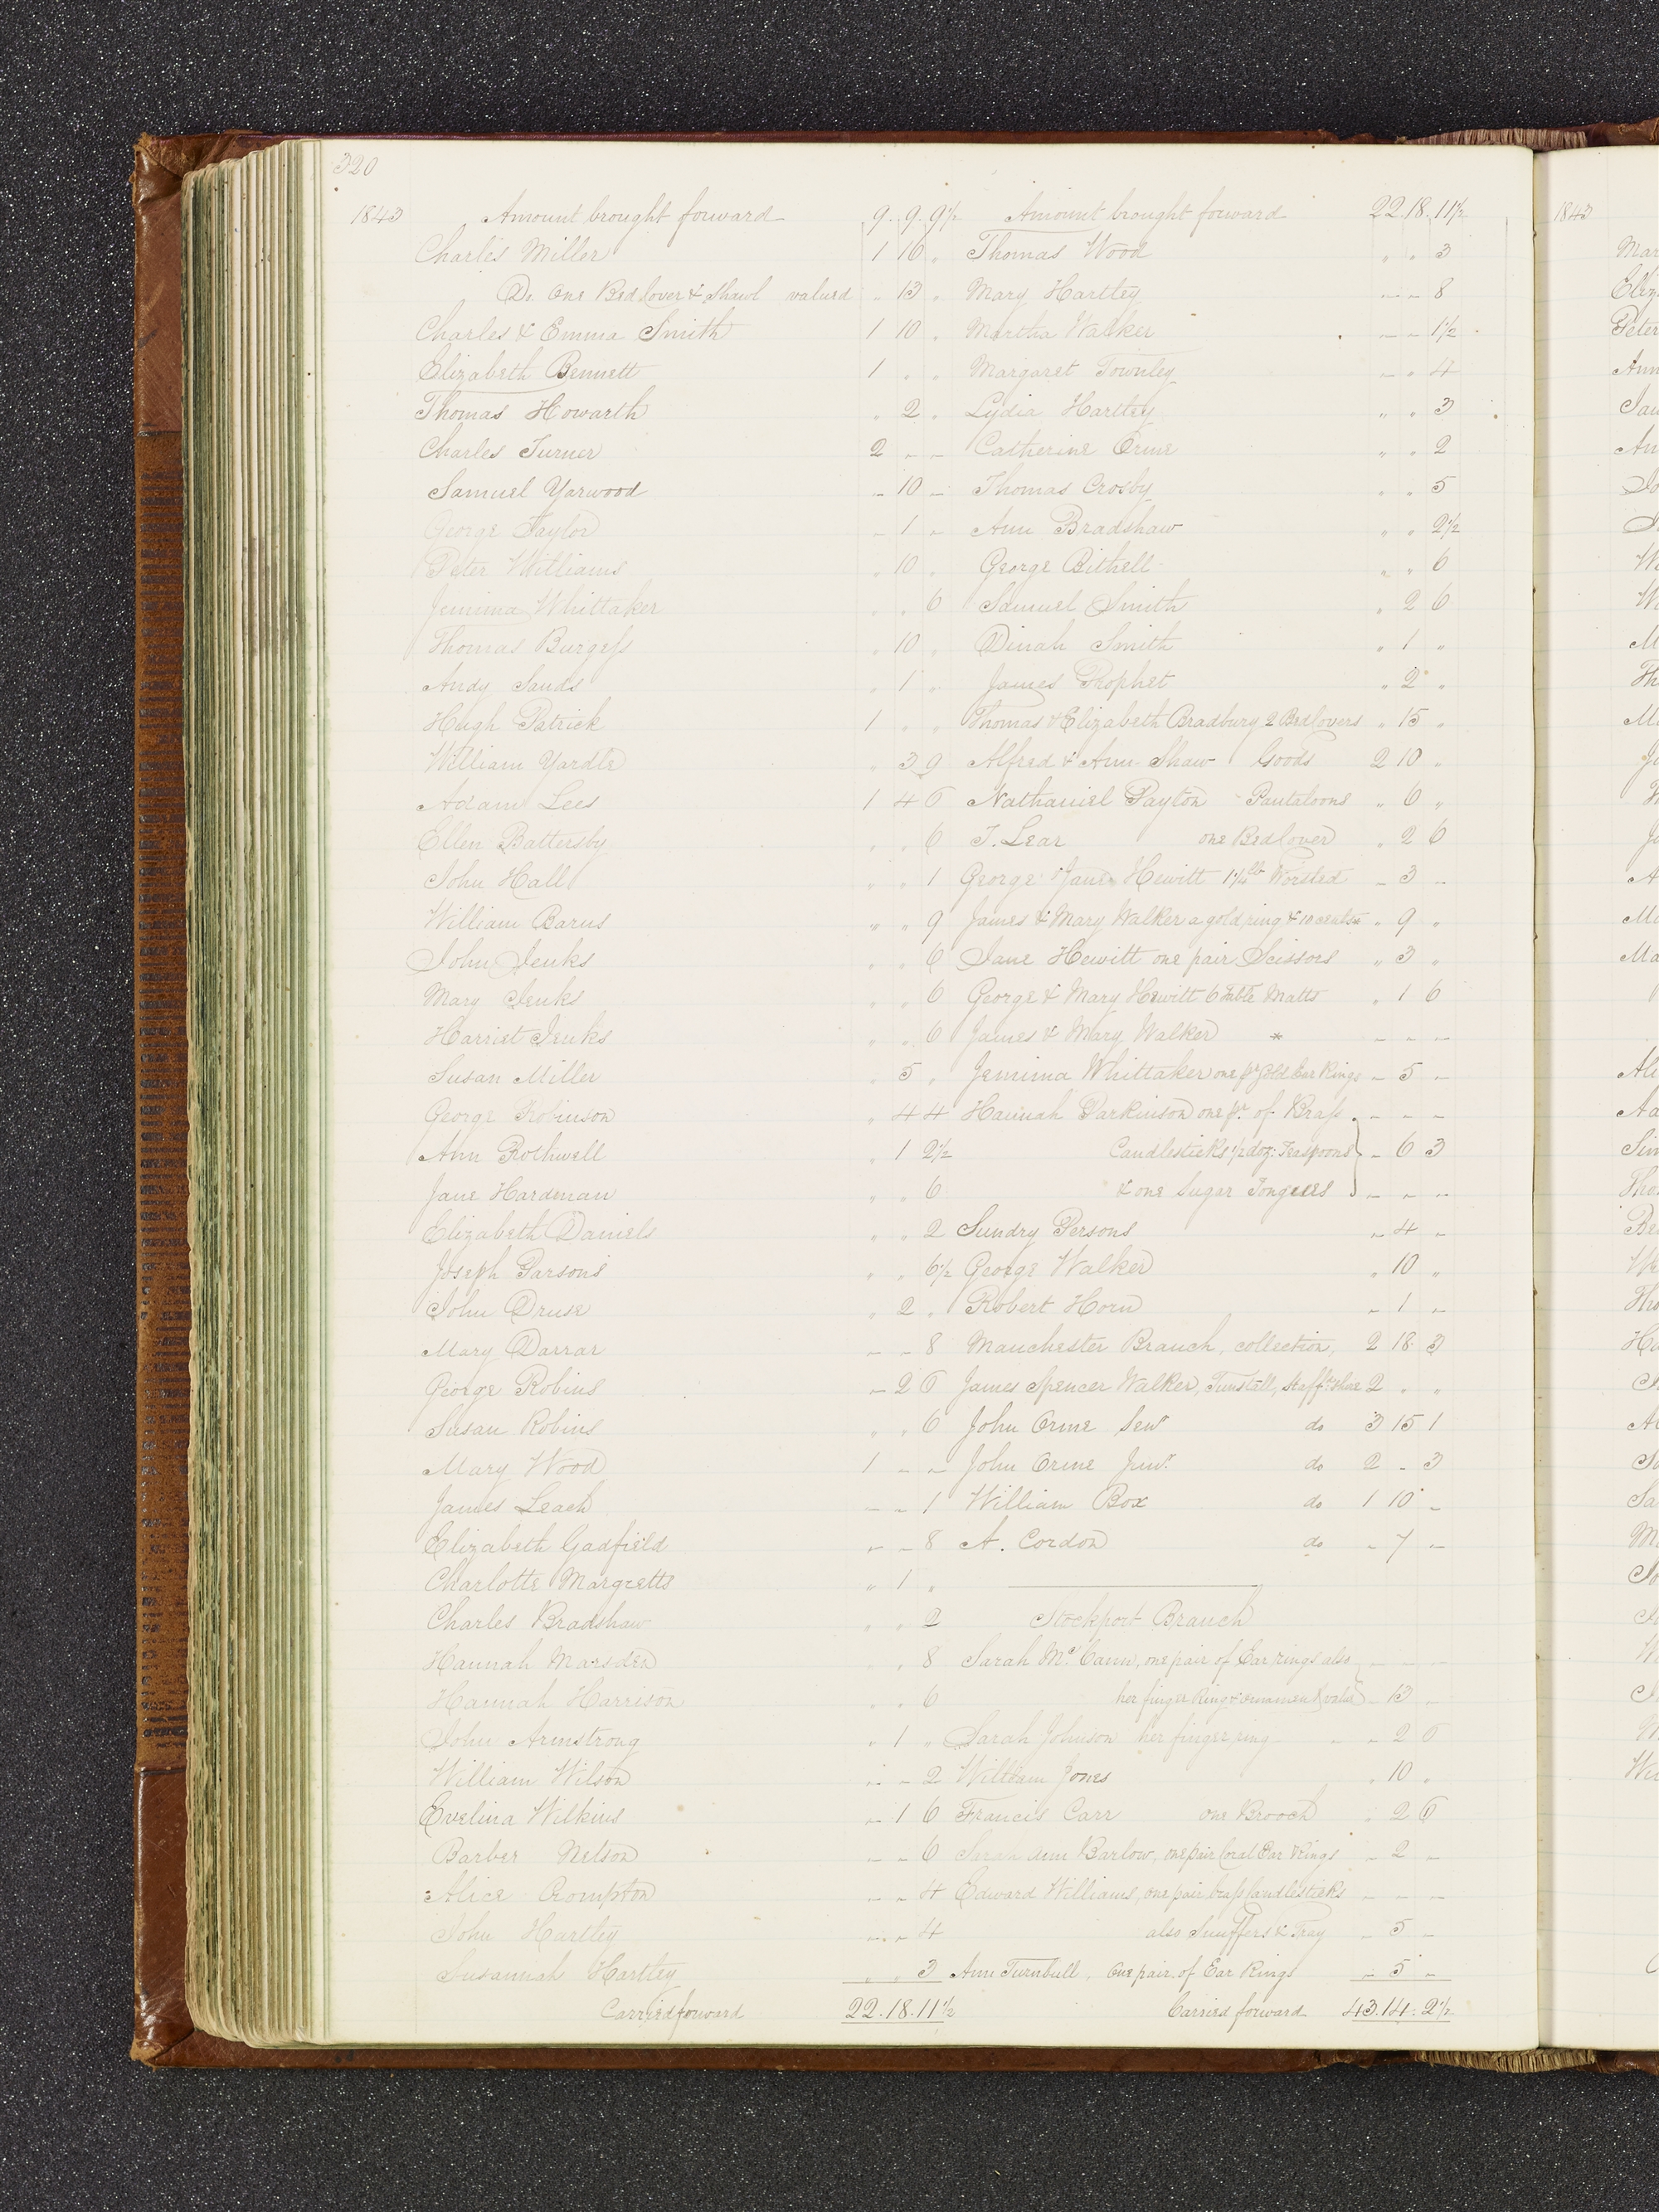 320
1843 Amount brought forward 9. 9. 9½
Charles Miller 1 10 "
Do. One Bed Cover & Shawl valued " 13 "
Charles & Emma Smith 1 10 "
Elizabeth Bennett 1 " "
Thomas Howarth " 2 "
Charles Turner 2 - -
Samuel Yarwood - 10 -
George Taylor - 1 -
Peter Williams " 10 "
Jemima Whittaker " " 6
Thomas Burgess " 10 "
Andy Sands " 1 "
Hugh Patrick 1 " "
William Yardle " 3 9
Adam Lees 1 4 6
Ellen Battersby " " 6
John Hall " " 1
William Barns " " 9
John Jenks " " 6
Mary Jenks " " 6
Harriet Jenks " " 6
Susan Miller " 5 "
George Robinson " 4 4
Ann Rothwell " 1 2½
Jane Hardman " " 6
Elizabeth Daniels " " 2
Joseph Parsons " " 6½
John Druse " 2 "
Mary Darrar - - 8
George Robins - 2 6
Susan Robins " " 6
Mary Wood 1 - -
James Leach - - 1
Elizabeth Gadfield - - 8
Charlotte Margretts " 1 "
Charles Bradshaw " " 2
Hannah Marsden " " 8
Hannah Harrison " " 6
John Armstrong " 1 "
William Wilson - - 2
Evelina Wilkins - 1 6
Barber Nelson - - 6
Alice Crompton - - 4
John Hartley - - 4
Susannah Hartley " " 3
Carried forward 22. 18. 11½
Amount brought forward 22. 18. 11½
Thomas Wood " " 3
Mary Hartley - - 8
Martha Walker - - 1½
Margaret Townley - " 4
Lydia Hartley " " 3
Catherine Orme " " 2
Thomas Crosby " " 5
Ann Bradshaw " " 2½
George Bithell " " 6
Samuel Smith " 2 6
Dinah Smith " 1 "
James Prophet " 2 "
Thomas & Elizabeth Bradbury 2 Bed Covers " 15 "
Alfred & Ann Shaw Goods 2 10 "
Nathaniel Payton Pantaloons " 6 "
T. Lear one Bed Cover " 2 6
George Jane Hewitt 1¼ lb Worsted - 3 -
James & Mary Walker a gold ring & 10 cents " 9 "
Jane Hewitt one pair Scissors " 3 "
George & Mary Hewitt 6 Table Matts " 1 6
James & Mary Walker * - - -
Jemima Whittaker one pr Gold Ear Rings - 5 -
Hannah Parkinson one pr. of Brass - - -
Candlesticks ½ doz: Teaspoons } - 6 3
& one Sugar Tongues - - -
Sundry Persons - 4 -
George Walker " 10 "
Robert Horn - 1 -
Manchester Branch, collection, 2 18 3
James Spencer Walker, Tunstall, Staffdshire 2 " "
John Orme Senr do 3 15 1
John Orme Junr. do 2 - 3
William Box do 1 10 -
A. Cordon do - 7 -
Stockport Branch
Sarah Mc Cann, one pair of Ear rings also - - -
her finger Ring & ornament value - 13 -
Sarah Johnson her finger ring - 2 6
William Jones " 10 "
Francis Carr one Brooch " 2 6
Sarah Ann Barlow, one pair Coral Ear Rings - 2 -
Edward Williams, one pair brass Candlesticks - - -
also Snuffers & Tray - 5 -
Ann Turnbull, One pair of Ear Rings - 5 -
Carried forward 43. 14. 2½
1843